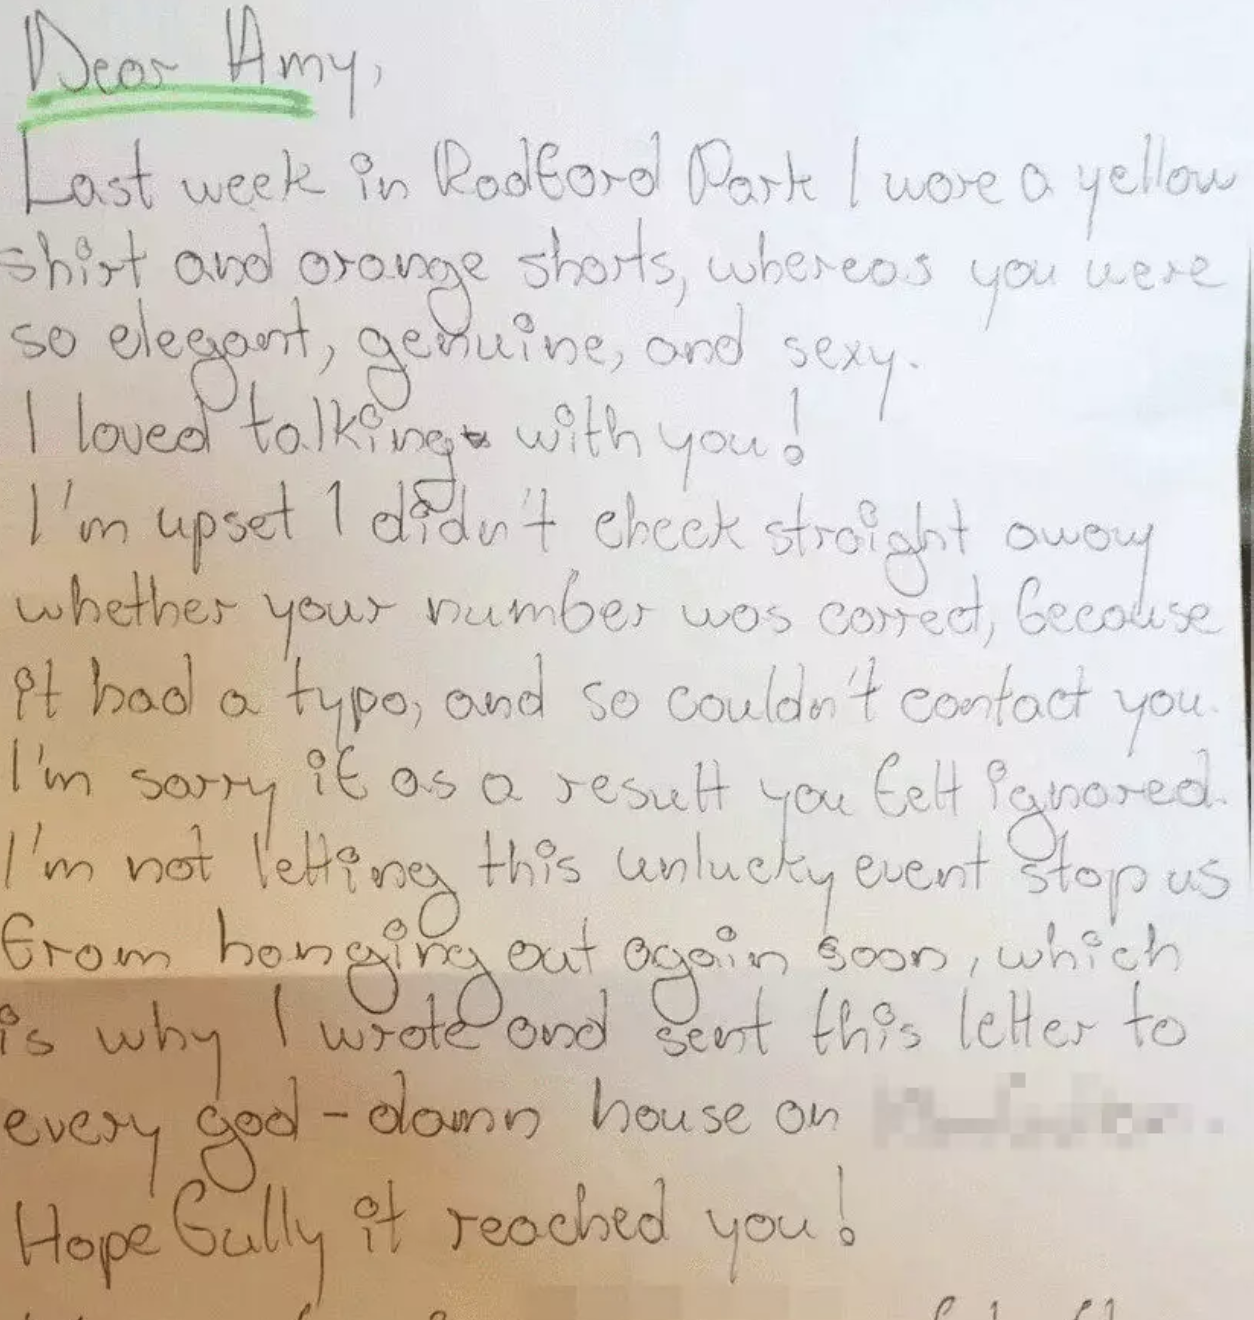 Dear Amy,
Last week in Radford Park I wore a yellow
shirt and orange shorts, whereas you were
so elegant, genuine, and sexy.
I loved talking with you!
I'm upset I didn't check straight away
whether your number was correct, because
it had a typo, and so couldn't contact you.
I'm sorry if as a result you felt ignored.
I'm not letting this unlucky event stop us
from hanging out again soon, which
is why I wrote and sent this letter to
every god-damn house on
Hopefully it reached you!